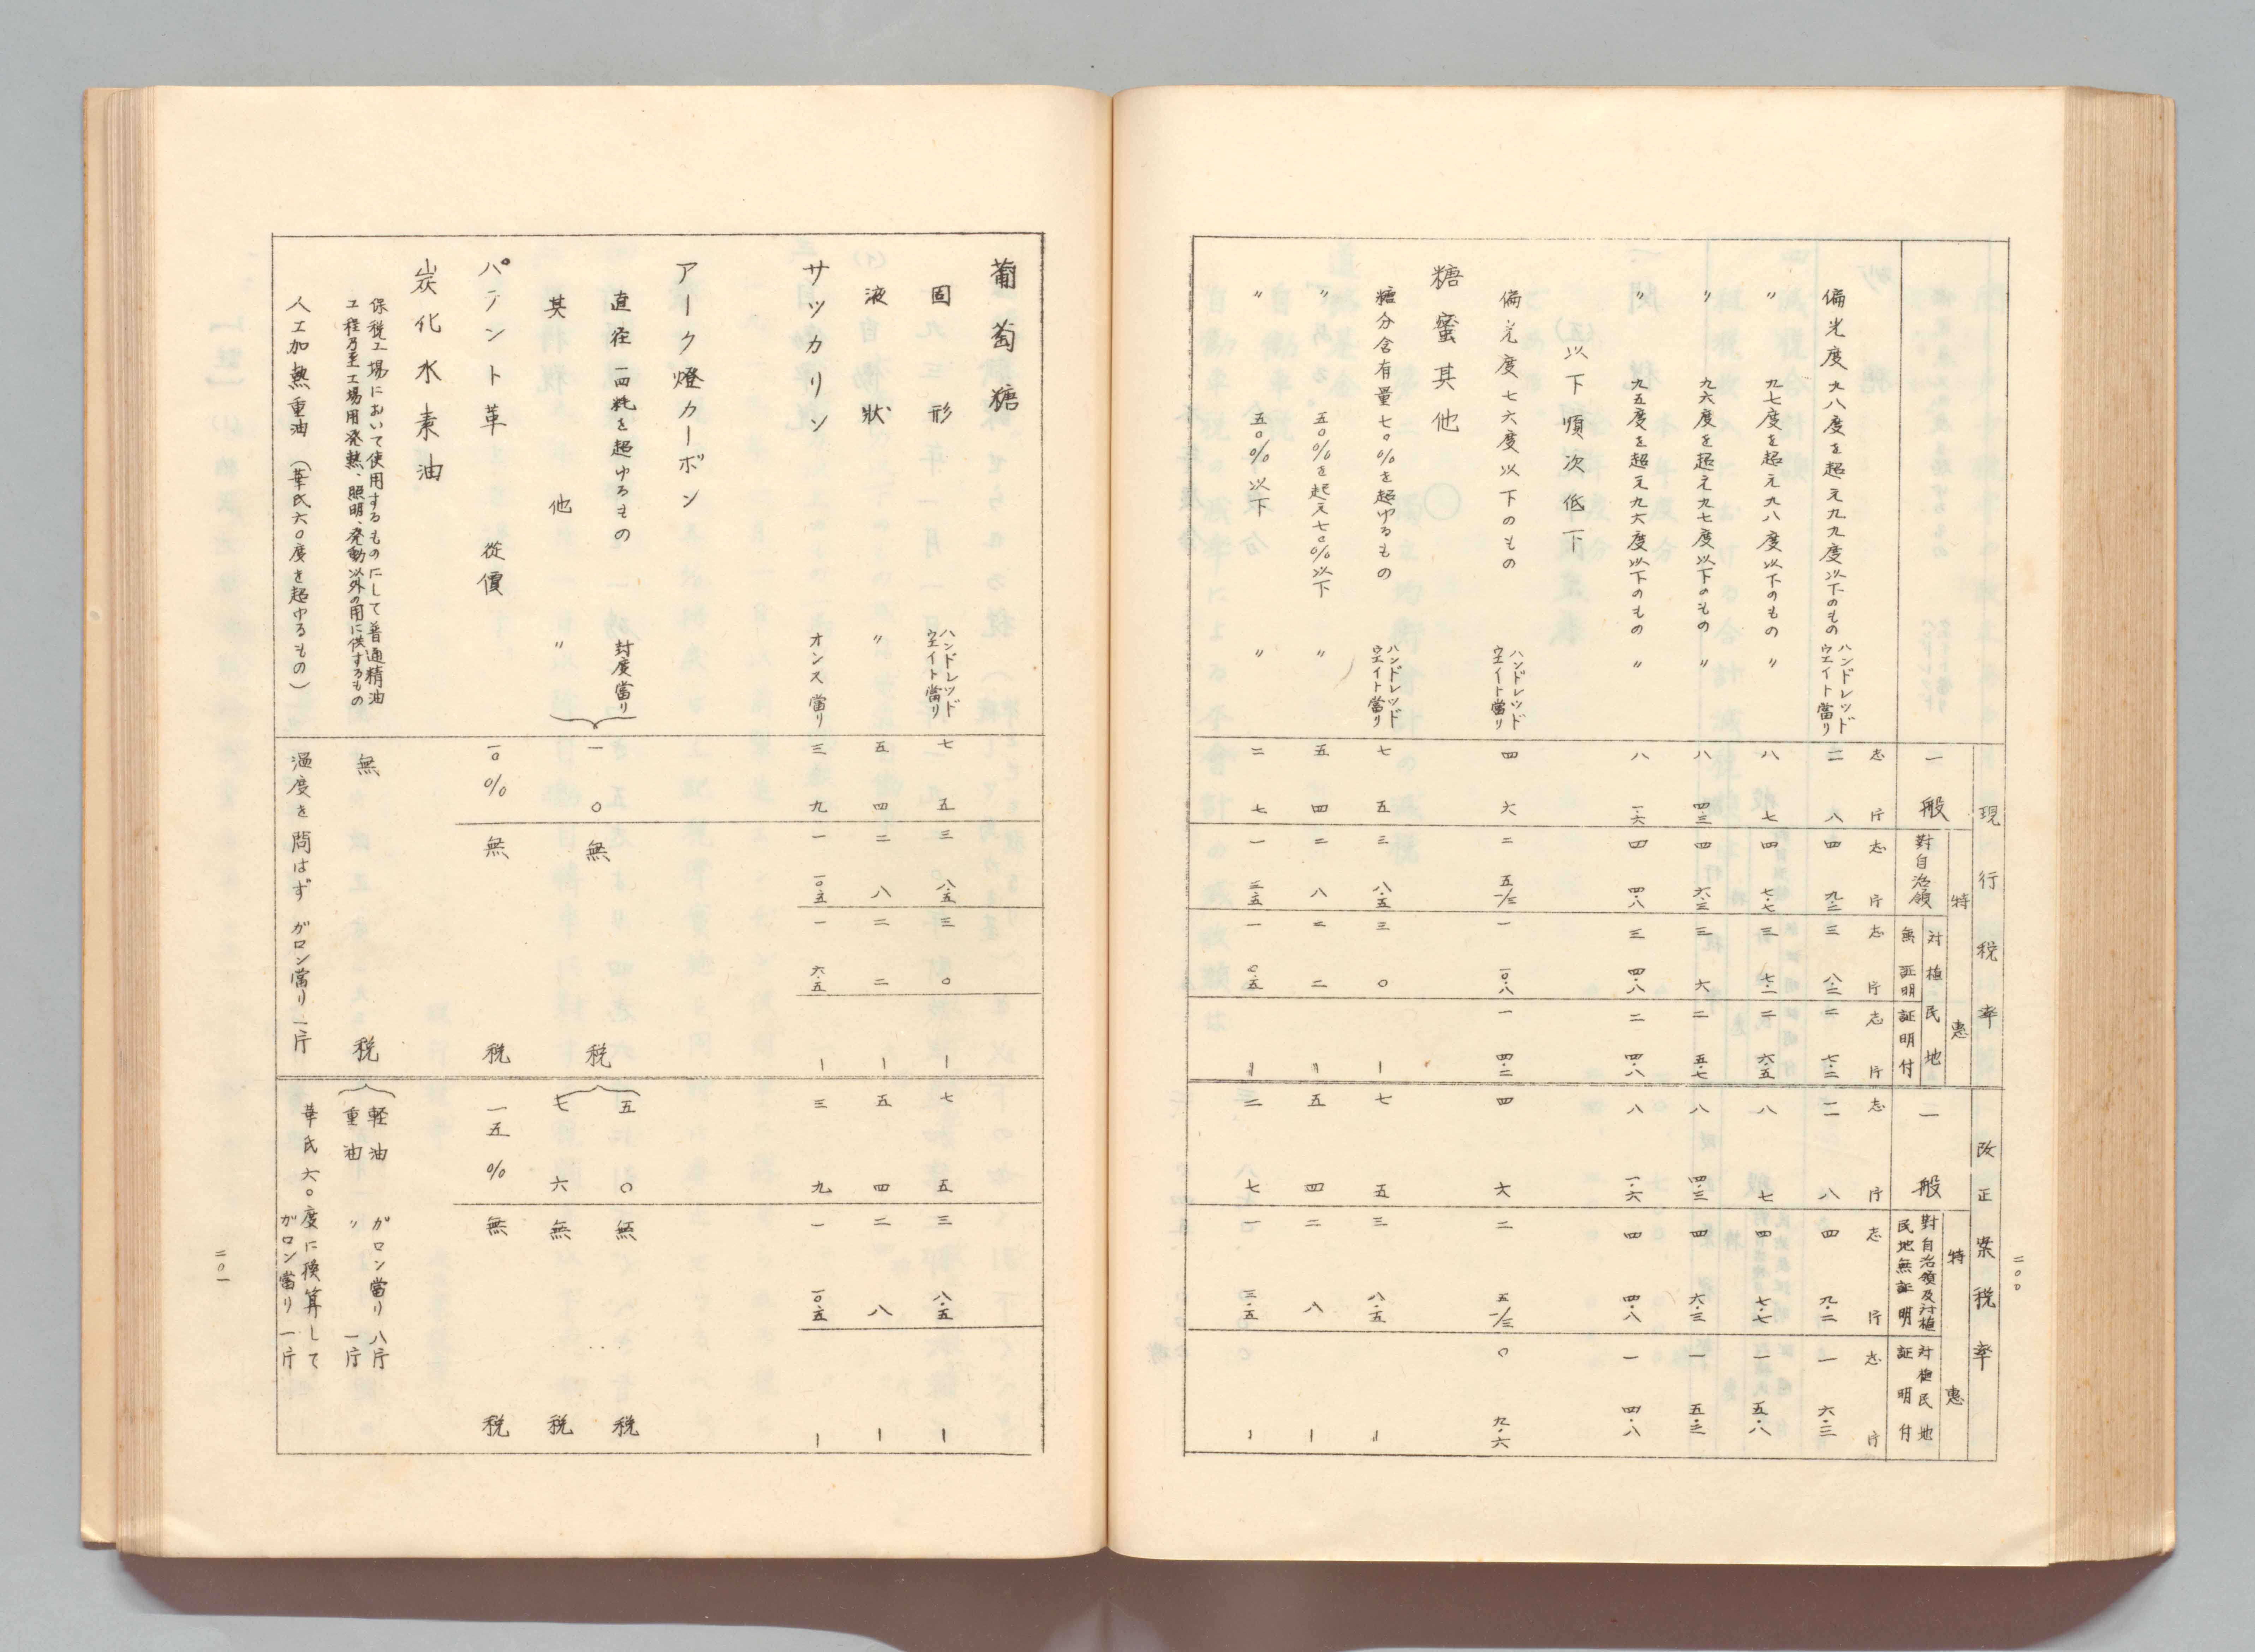 現行税率
改正案税率
特惠
特惠
一般
對自治領
対植民地
無証明
証明付
一般
對自治領及対植民地無証明
対植民地証明付
志 片 志 片 志 片 志 片 志 片 志 片 志 片
偏光度 九八度を超え九九度以下のもの ハンドレッドウエイト當り 一一 八 四 九・二 三 八・二 二 七・二 一一 八 四 九・二 一 六・三
〃 九七度を超え九八度以下のもの 〃 八 七 四 七・七 三 七・一 二 六・五 八 七 四 七・七 一 五・八
〃 九六度を超え九七度以下のもの 〃 八 四・三 四 六・三 三 六 二 五・七 八 四・三 四 六・三 一 五・三
〃 九五度を超え九六度以下のもの 〃 八 一・六 四 四・八 三 四・八 二 四・八 八 一・六 四 四・八 一 四・八
以下順次低下
偏光度 七六度以下のもの ハンドレッドウエイト當り 四 六 二 五一/三 一 一〇・八 一 四・二 四 六 二 五一/三 〇 九・六
糖蜜其他
糖分含有量七〇%を超ゆるもの ハンドレッドウエイト當り 七 五 三 八・五 三 〇 ー 七 五 三 八・五 〃
〃 五〇%を超え七〇%以下 〃 五 四 二 八 二 二 〃 五 四 二 八 ー
〃 五〇%以下 〃 二 七 一 三・五 一 〇・五 〃 二 七 一 三・五 ー
二〇〇
葡萄糖
固形 ハンドレッドウエイト當り 七 五 三 八・五 三 〇 ー 七 五 三 八・五 ー
液狀 〃 五 四 二 八 二 二 ー 五 四 二 八 ー
サッカリン オンス當り 三 九 一 一〇・五 一 六・五 ー 三 九 一 一〇・五 ー
アーク燈カーボン
直径 一四粍を超ゆるもの 封度當り 一 〇 無税 五 〇 無税
其他 〃 七 六 無税
パテント革 從價 一〇% 無税 一五% 無税
炭化水素油
保税工場において使用するものにして普通精油
工程乃至工場用発熱、照明、発動以外の用に供するもの 無税 軽油 ガロン當り 八片
重油 〃 一片
人工加熱重油(華氏六〇度を超ゆるもの) 温度を問はず ガロン當り 一片 華氏六〇度に換算して
ガロン當り 一片
二〇一